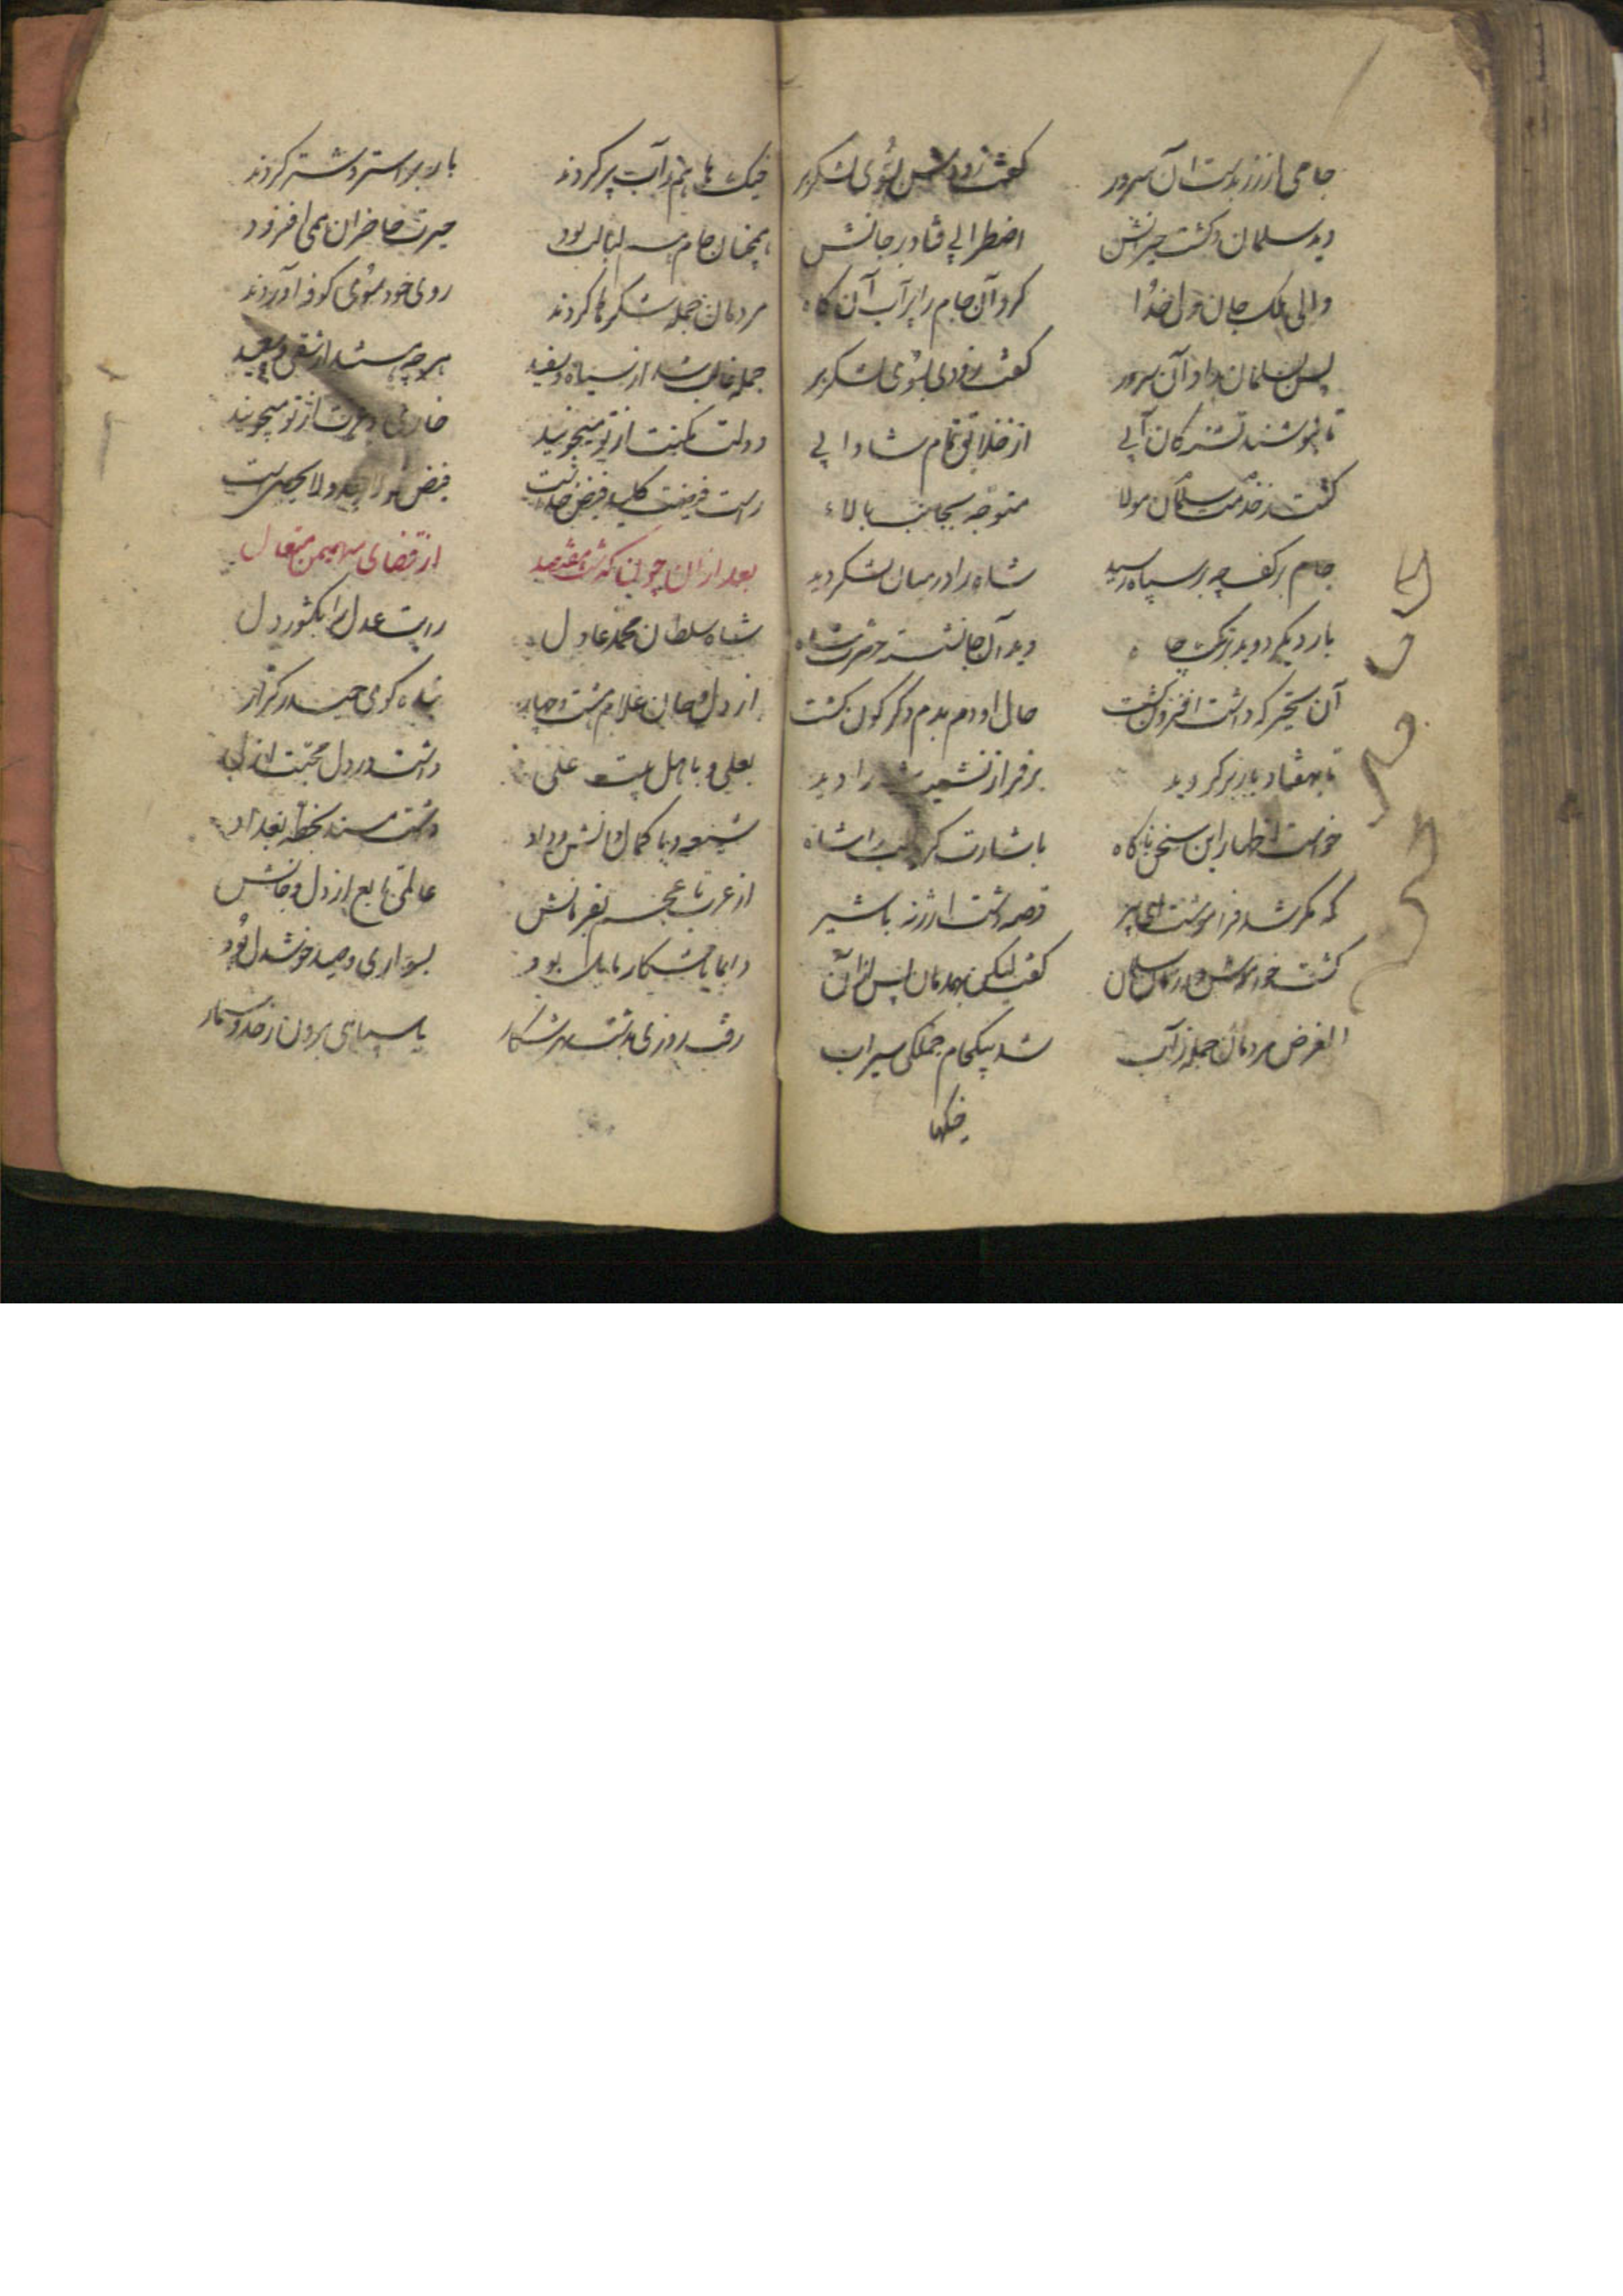 جامی از زر بدست آن سرور کفت زودش بسُوی لشکر بر
دید سلمان و کشت حیرانش اضطرابی فتاد در جانش
والی ملک جان ولی خدُا کرد آن جام را پر آب آن کاه
پس بسلمان داد آن سرور کفت زودی بسُوی لشکر بر
تا بنوشند تشنه کان آبی از خلایق تمام شادابی
کشت در خدمت سلمان مولا متوجه بجانب بالاء
جام بر کف چو بر سپاه رسید شاه را در میان لشکر دید
بار دیکر دوید نزد جا دید آن جا نشسته حضرت شاه
آن تحیر که داشت افزون کشت حال او دم بدم دکر کون کشت
تا بهفتاد بار بر کردید بر فراز نشیب را دید
خواست اظهار این سخن ناکاه باشارت کزید لب را شاه
که مکر شد فراموشت ای پیر قصه دشت ارژنه با شیر
کشت خواموش در زمان سلمان کفت لیکن بهمدمان پس از آن
الغرض مردمان جمله ز آب شد بیکجام جملکی سیراب
خیکها
خیک ها هم ز آب پر کردند بار بر استر و شتر کردند
همچنان جام لبالب بود حیرت حاضران همی افزود
مردمان جمله شکرها کردند روی خود سُوی کوفه آوردند
جمله غالب شد از سیاه و سفید هر چه هستند از شقی و سعید
دولت مکنت از تو میجویند از تو میجویند
راست فیضت کلید فیض خداست فیض
بعد از آن چونکه از قضای مهیمن متعال
شاه سلطان محمد عادل رایت عدل را بکشور دل
از دل و جان غلام هشت و چهار بنده کوی حیدر کرار
بعلی و باهل بیت علی داشت در دل محبت ازلی
شیعه و با کمال دانش و داد داشت مسند بخطه بغداد
از عرب تا عجم بفرمانش عالمی تابع از دل و جانش
دایما با شکار مایل بود بسواری و صید خوشدل بُود
رفت روزی بدشت بهر شکار با سپاهی برون ز حد و شمار